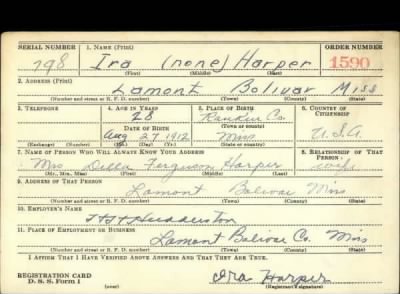 SERIAL NUMBER 1. NAME (Print) ORDER NUMBER
798 Ira (none) Harper 1590
(First) (Middle) (Last)
2. ADDRESS (Print)
Lamont Bolivar Miss
(Number and street or R. F. D. number) (Town) (County) (State)
3. TELEPHONE 4. AGE IN YEARS 5. PLACE OF BIRTH 6. COUNTRY OF CITIZENSHIP
28 Rankin Co.
DATE OF BIRTH (Town or county)
Aug 27 1912 Miss U.S.A
(Exchange) (Number) (Mo.) (Day) (Yr.) (State or country)
7. NAME OF PERSON WHO WILL ALWAYS KNOW YOUR ADDRESS 8. RELATIONSHIP OF THAT PERSON
Mrs Ferguson Harper wife
(Mr., Mrs., Miss) (First) (Middle) (Last)
9. ADDRESS OF THAT PERSON
Lamont Bolivar Miss
(Number and street or R. F. D. number) (Town) (County) (State)
10. EMPLOYER'S NAME
Huddleston
11. PLACE OF EMPLOYMENT OR BUSINESS
Lamont Bolivar Co. Miss
(Number and street or R. F. D. number) (Town) (County) (State)
I AFFIRM THAT I HAVE VERIFIED ABOVE ANSWERS AND THAT THEY ARE TRUE.
REGISTRATION CARD
D. S. S. Form 1 Ira Harper
(Registrant's signature)